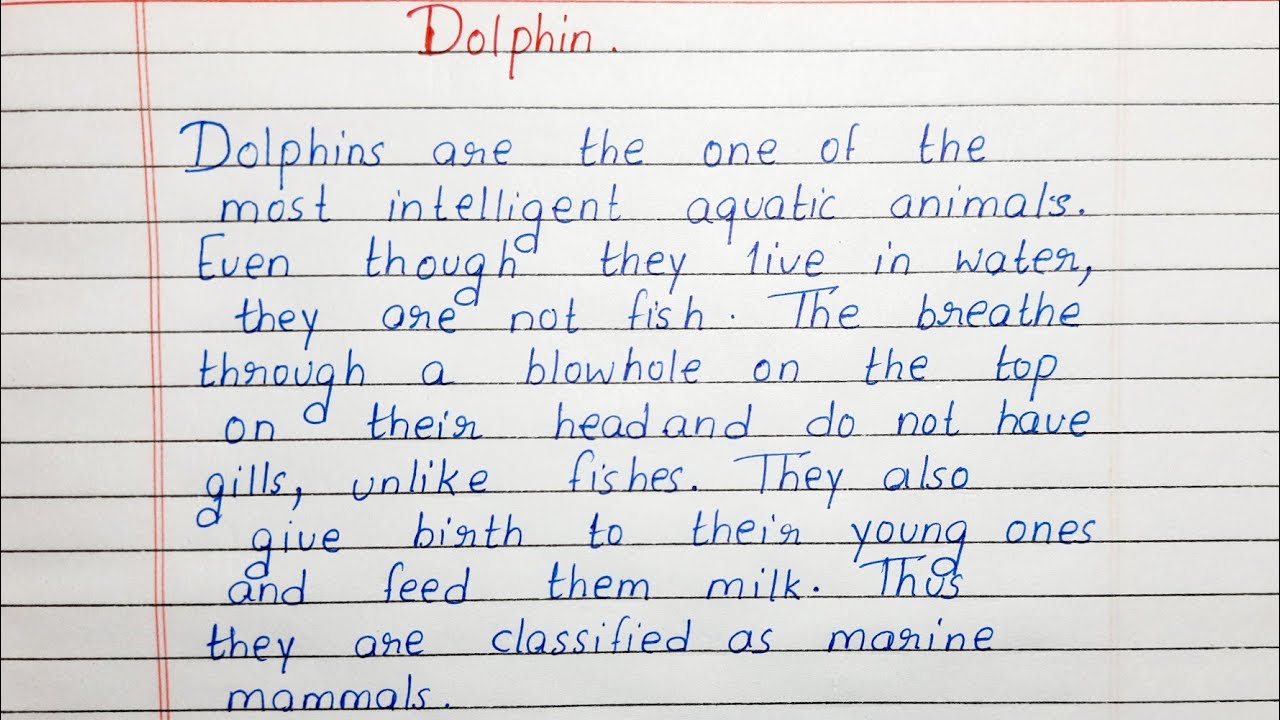 Dolphin.
Dolphins are the one of the
most intelligent aquatic animals.
Even though they live in water,
they are not fish. The breathe
through a blowhole on the top
on their head and do not have
gills, unlike fishes. They also
give birth to their young ones
and feed them milk. Thus
they are classified as marine
mammals.